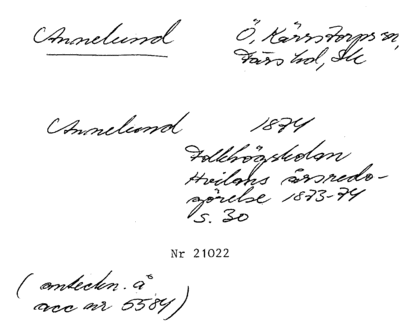 Annelund
Ö. Kärrstorps sn,
Färs hd, Sk
Annelund 1874
Folkhögskolan
Hvilans årsredo-
görelse 1873-74
s. 30
Nr 21022
( anteckn. å
acc nr 5584 )